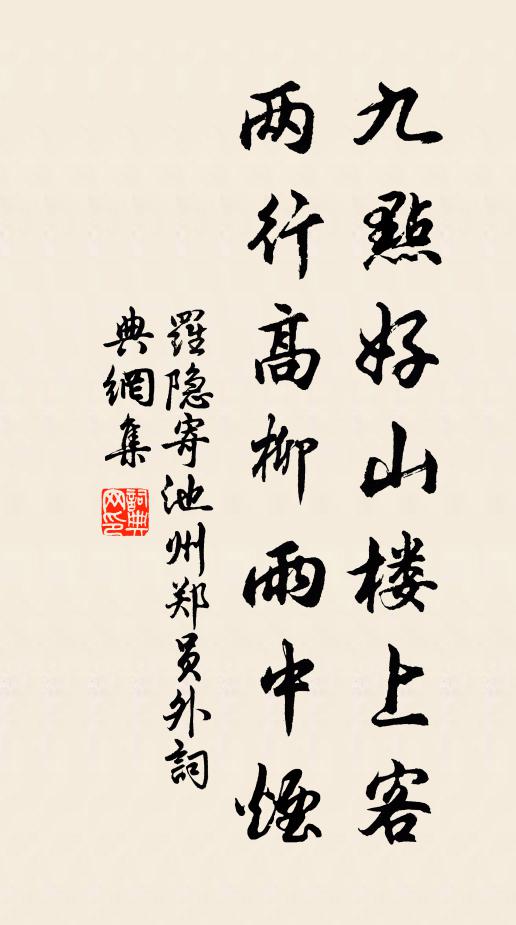 九點好山楼上客
两行高柳雨中煙
羅隐寄池州郑员外詞
典網集
詞典网印